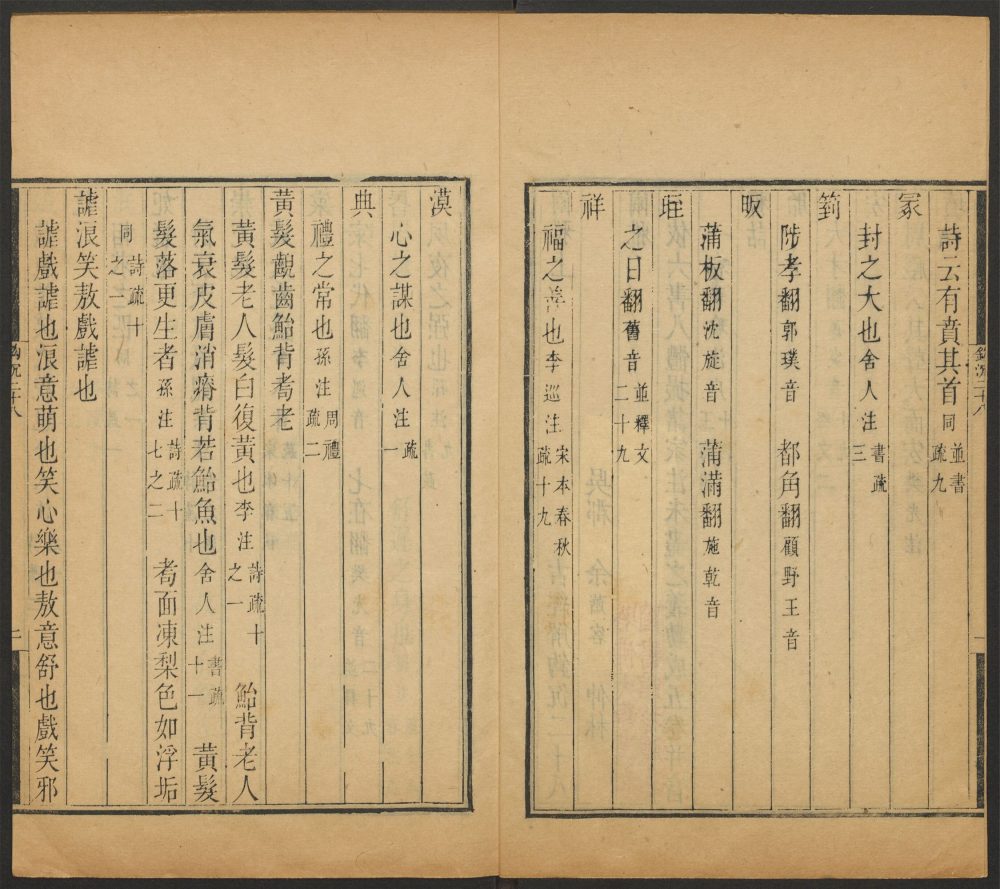 詩云有賁其首同 並書疏九
冢
封之大也舍人注 書疏三
箌
陟孝翻郭璞音 都角翻顧野王音
昄
蒲板翻沈旋音 蒲滿翻施乾音
晊
之日翻舊音 並釋文二十九
祥
福之善也李巡注 宋本春秋疏十九
漠
心之謀也舍人注 疏一
典
禮之常也孫注 周禮疏二
黃髮齯齒鮐背耇老
黃髮老人髮白復黃也李注 詩疏十之一 鮐背老人
氣衰皮膚消瘠背若鮐魚也舍人注 書疏十一 黃髮
髮落更生者孫注 詩疏十七之二 耇面凍梨色如浮垢
同 詩疏十之一
謔浪笑敖戲謔也
謔戲謔也浪意萌也笑心樂也敖意舒也戲笑邪
鉤沉二十八
一
二